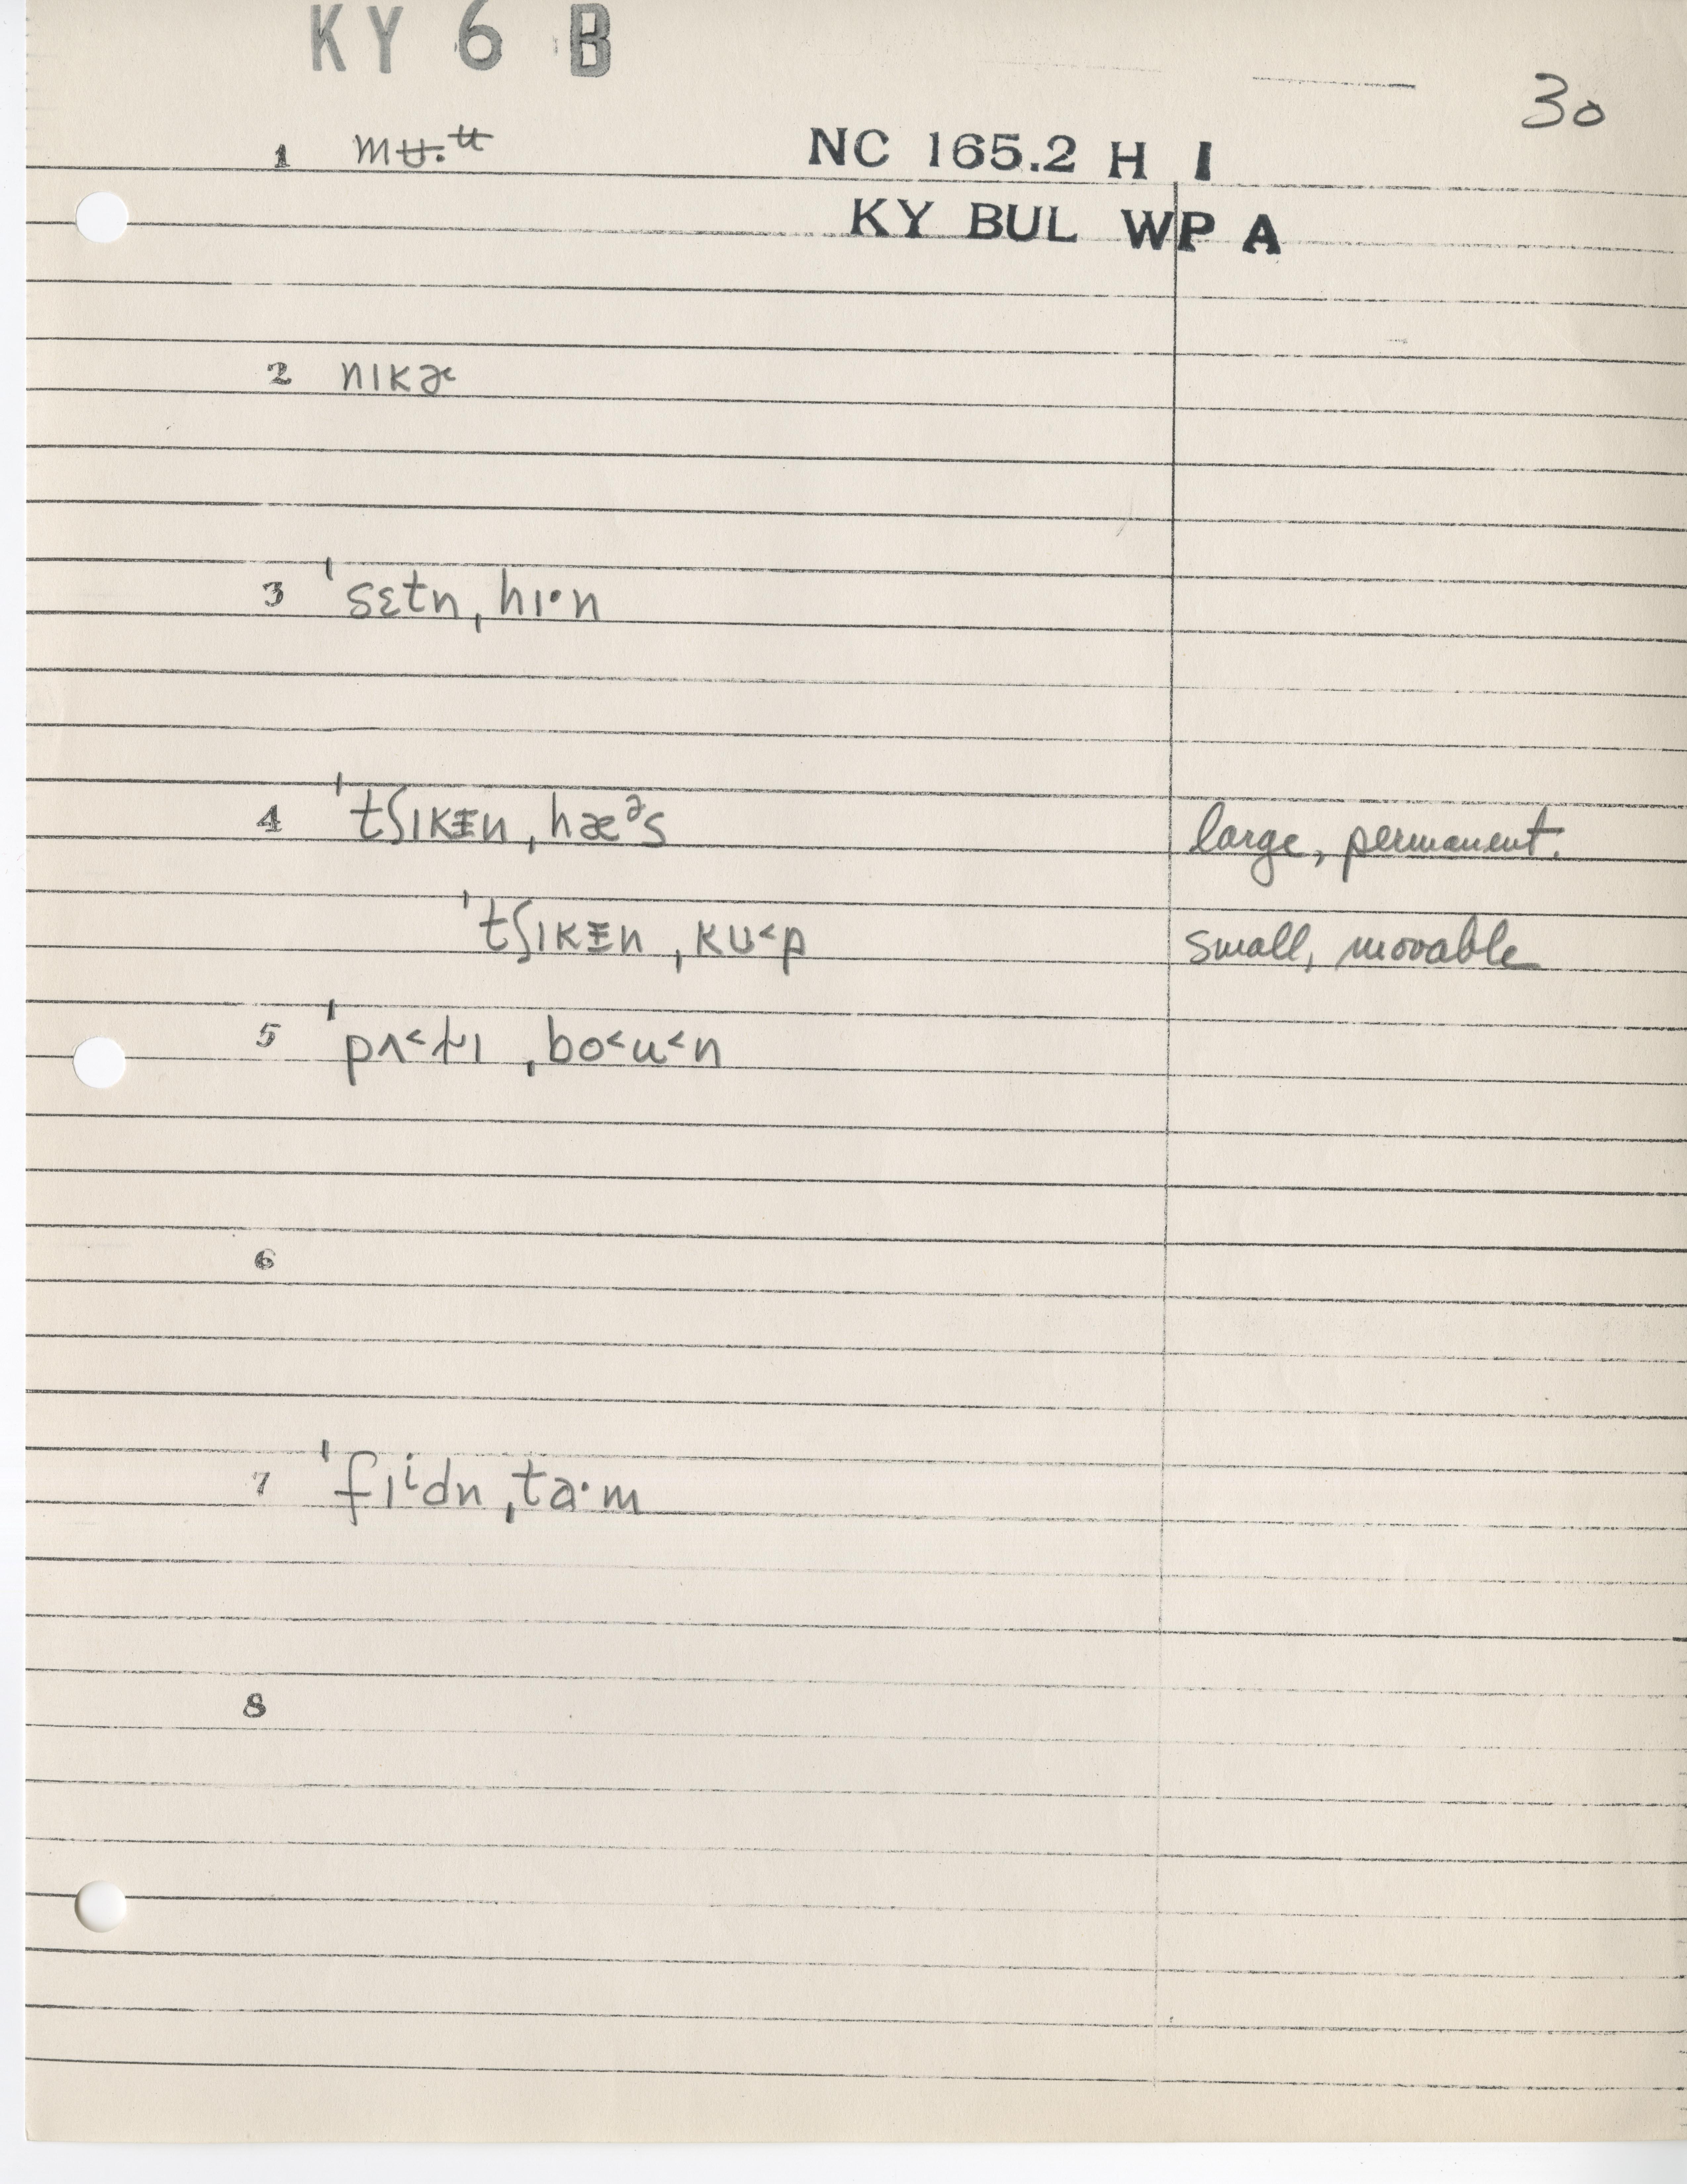 KY 6 B
30
1 mʉ·ᶶ NC 165.2 H I
KY BUL WP A
2 nɪkɚ
3 ˈsɛtn̩ˌhɪ·n
4 ˈtʃɪkɪ̵nˌhæᵊs large, permanent.
ˈtʃɪkɪ̵nˌku˂p small, movable
5 ˈpʌ˂t̬ɪˌbo˂u˂n
6
7 ˈfɪⁱdnˌta·m
8